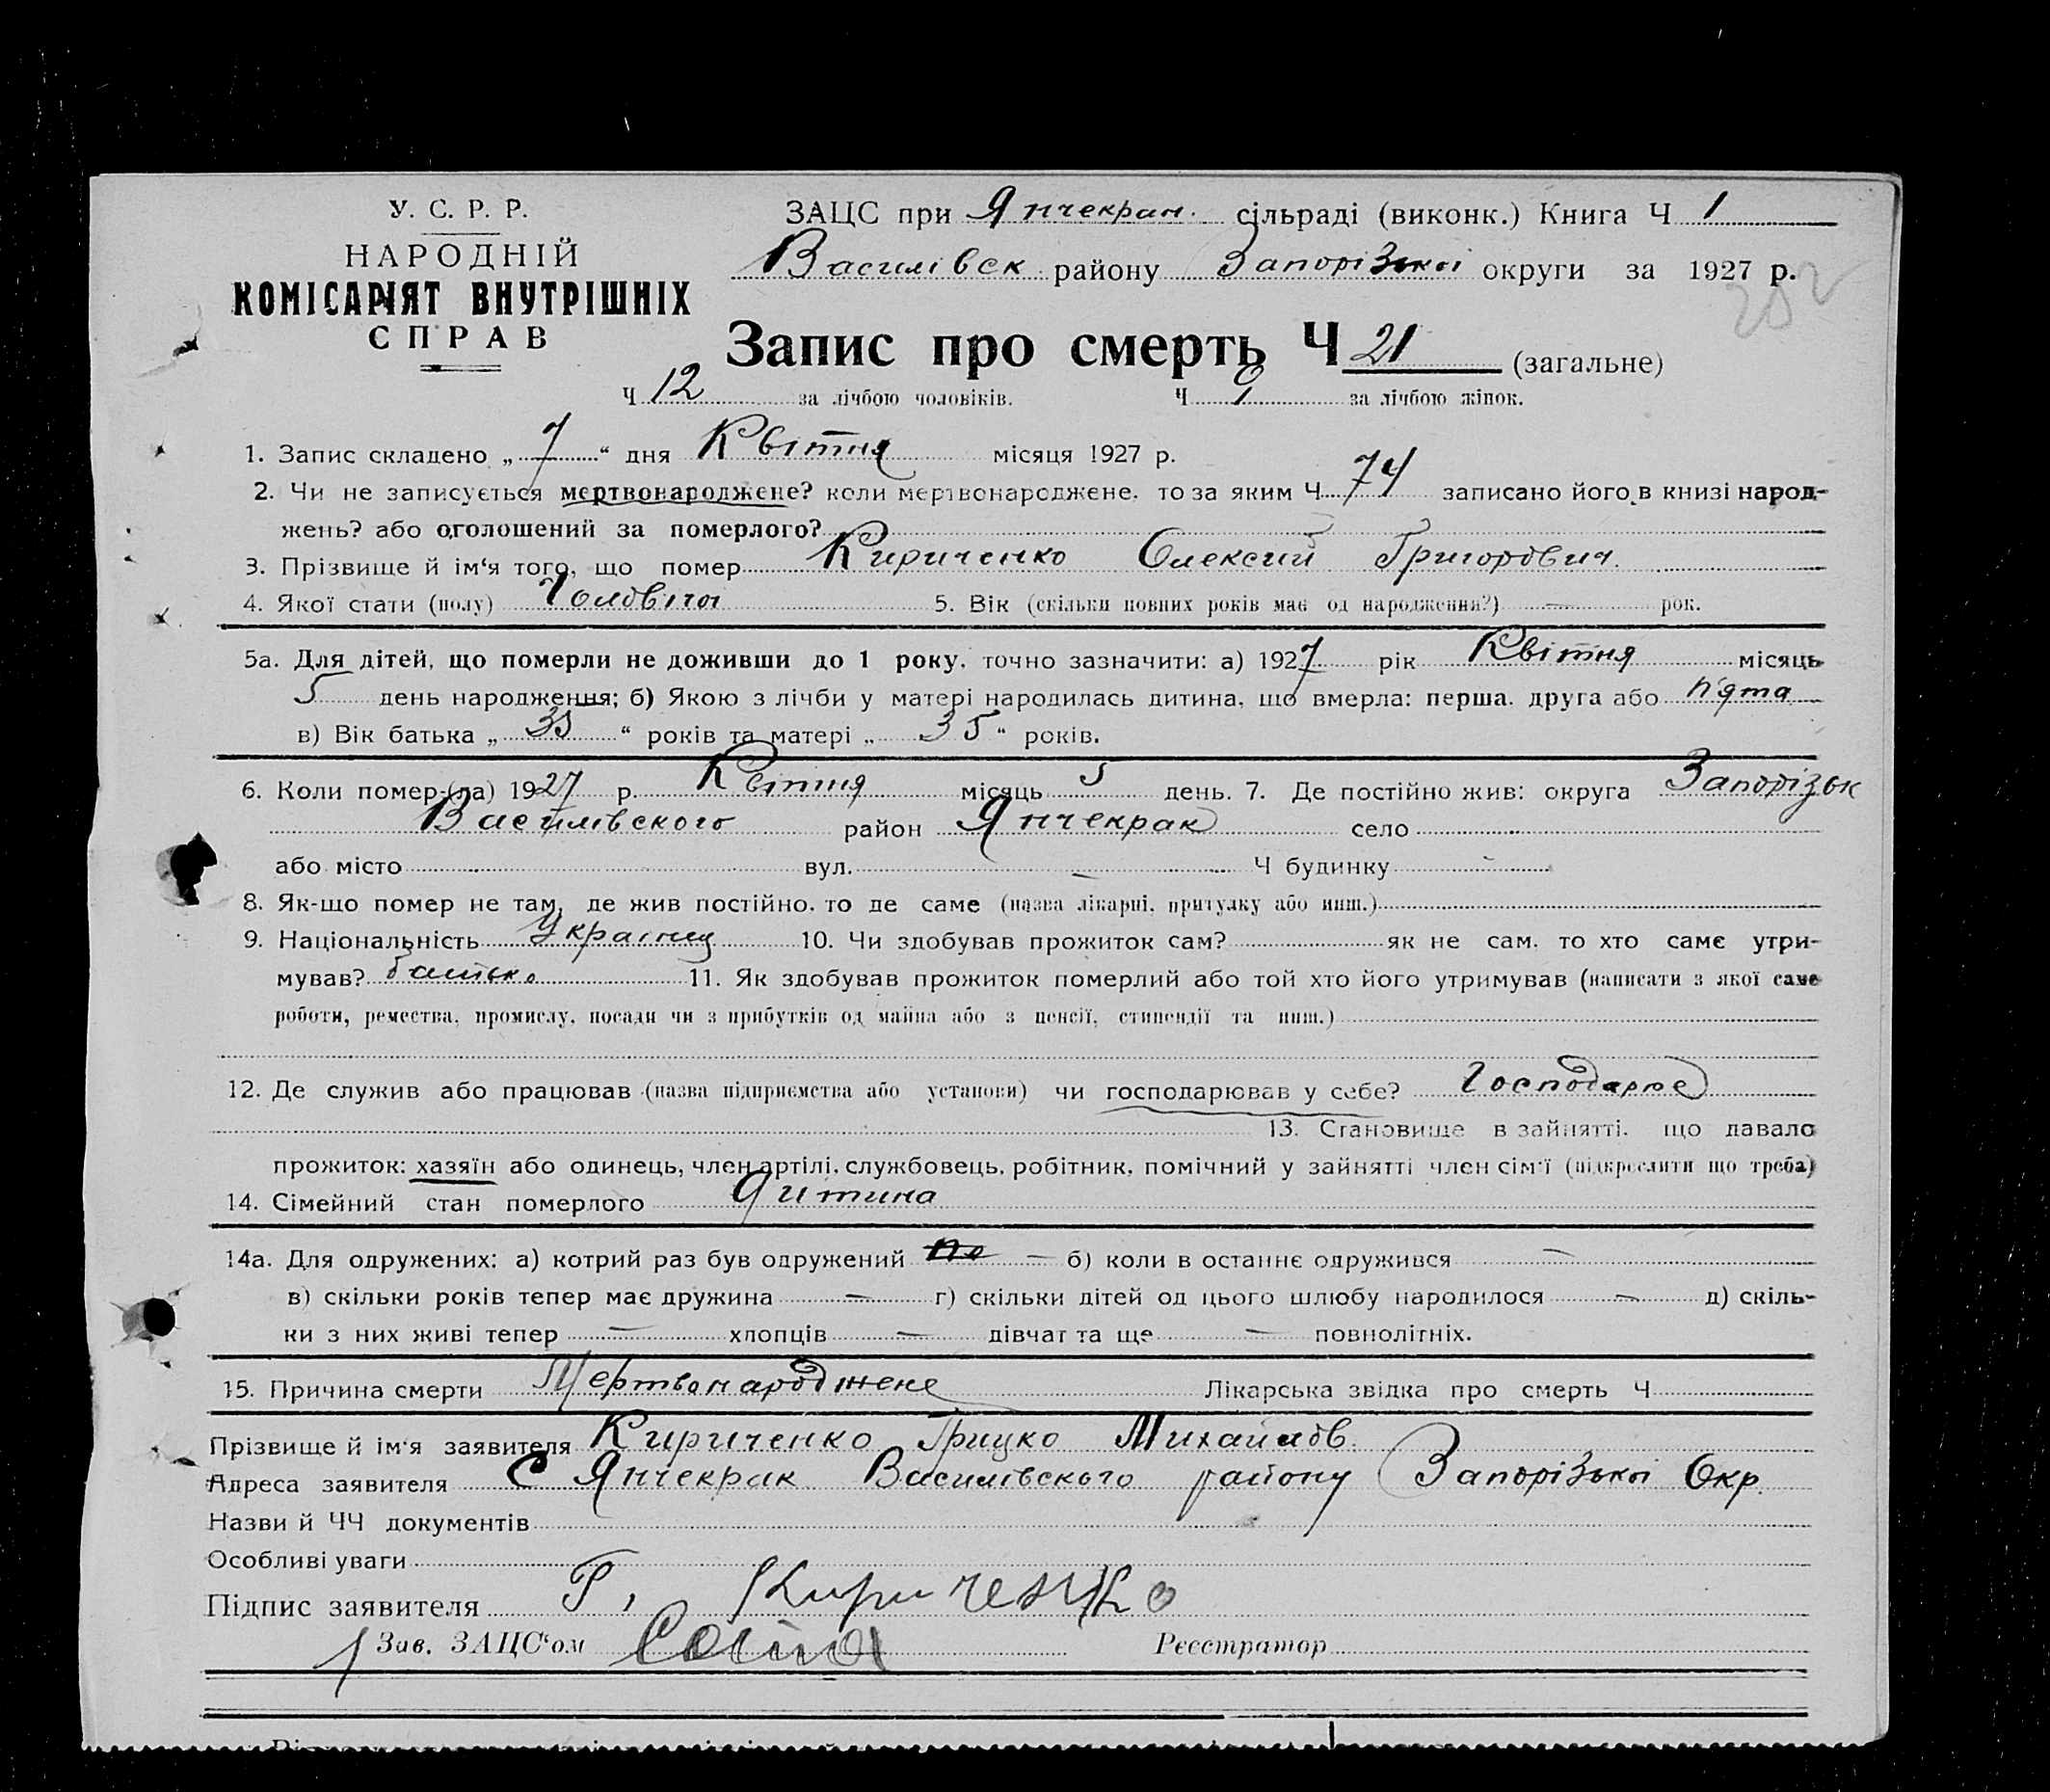 У. С. Р. Р.
НАРОДНІЙ
КОМІСАРІЯТ ВНУТРІШНІХ
СПРАВ
ЗАЦС при Янчекрак. сільраді (виконк.) Книга Ч 1
Василівск району Запорізької округи за 1927 р.
Запис про смерть Ч 21 (загальне)
Ч 12 за лічбою чоловіків. Ч 9 за лічбою жінок.
1. Запис складено „ 7 “ дня Квітня місяця 1927 р.
2. Чи не записується мертвонароджене? коли мертвонароджене, то за яким Ч 74 записано його в книзі народ-
жень? або оголошений за померлого?
3. Прізвище й ім‘я того, що помер Кириченко Олексій Григорович.
4. Якої стати (полу) Чоловічої 5. Вік (скільки повних років має од народження?) — рок.
5а. Для дітей, що померли не доживши до 1 року, точно зазначити: а) 1927 рік Квітня місяць
5 день народження; б) Якою з лічби у матері народилась дитина, що вмерла: перша, друга або п'ята
в) Вік батька „ 35 “ років та матері „ 35 “ років.
6. Коли помер-(ла) 1927 р. Квітня місяць 5 день. 7. Де постійно жив: округа Запорізьк
Василівського район Янчекрак село
або місто вул. — Ч будинку -
8. Як-що помер не там, де жив постійно, то де саме (назва лікарні, притулку або инш.)
9. Національність Українец 10. Чи здобував прожиток сам? як не сам, то хто саме утри-
мував? батько 11. Як здобував прожиток померлий або той хто його утримував (написати з якої саме
роботи, ремества, промислу, посади чи з прибутків од майна або з пенсії, стипендії та инш.)
12. Де служив або працював (назва підприємства або установи) чи господарював у себе? Господарює
13. Становище в зайнятті, що давало
прожиток: хазяїн або одинець, член артілі, службовець, робітник, помічний у зайнятті член сім‘ї (підкреслити що треба)
14. Сімейний стан померлого Дитина
14а. Для одружених: а) котрий раз був одружений — б) коли в останнє одружився —
в) скільки років тепер має дружина — г) скільки дітей од цього шлюбу народилося — д) скіль-
ки з них живі тепер — хлопців — дівчат та ще — повнолітніх.
15. Причина смерти Мертвонароджене Лікарська звідка про смерть Ч
Прізвище й ім‘я заявителя Кириченко Грицко Михайлов.
Адреса заявителя С Янчекрак Василівського району Запорізької Окр.
Назви й ЧЧ документів
Особливі уваги
Підпис заявителя Г, Кириченко
Зав. ЗАЦС‘ом
Реєстратор